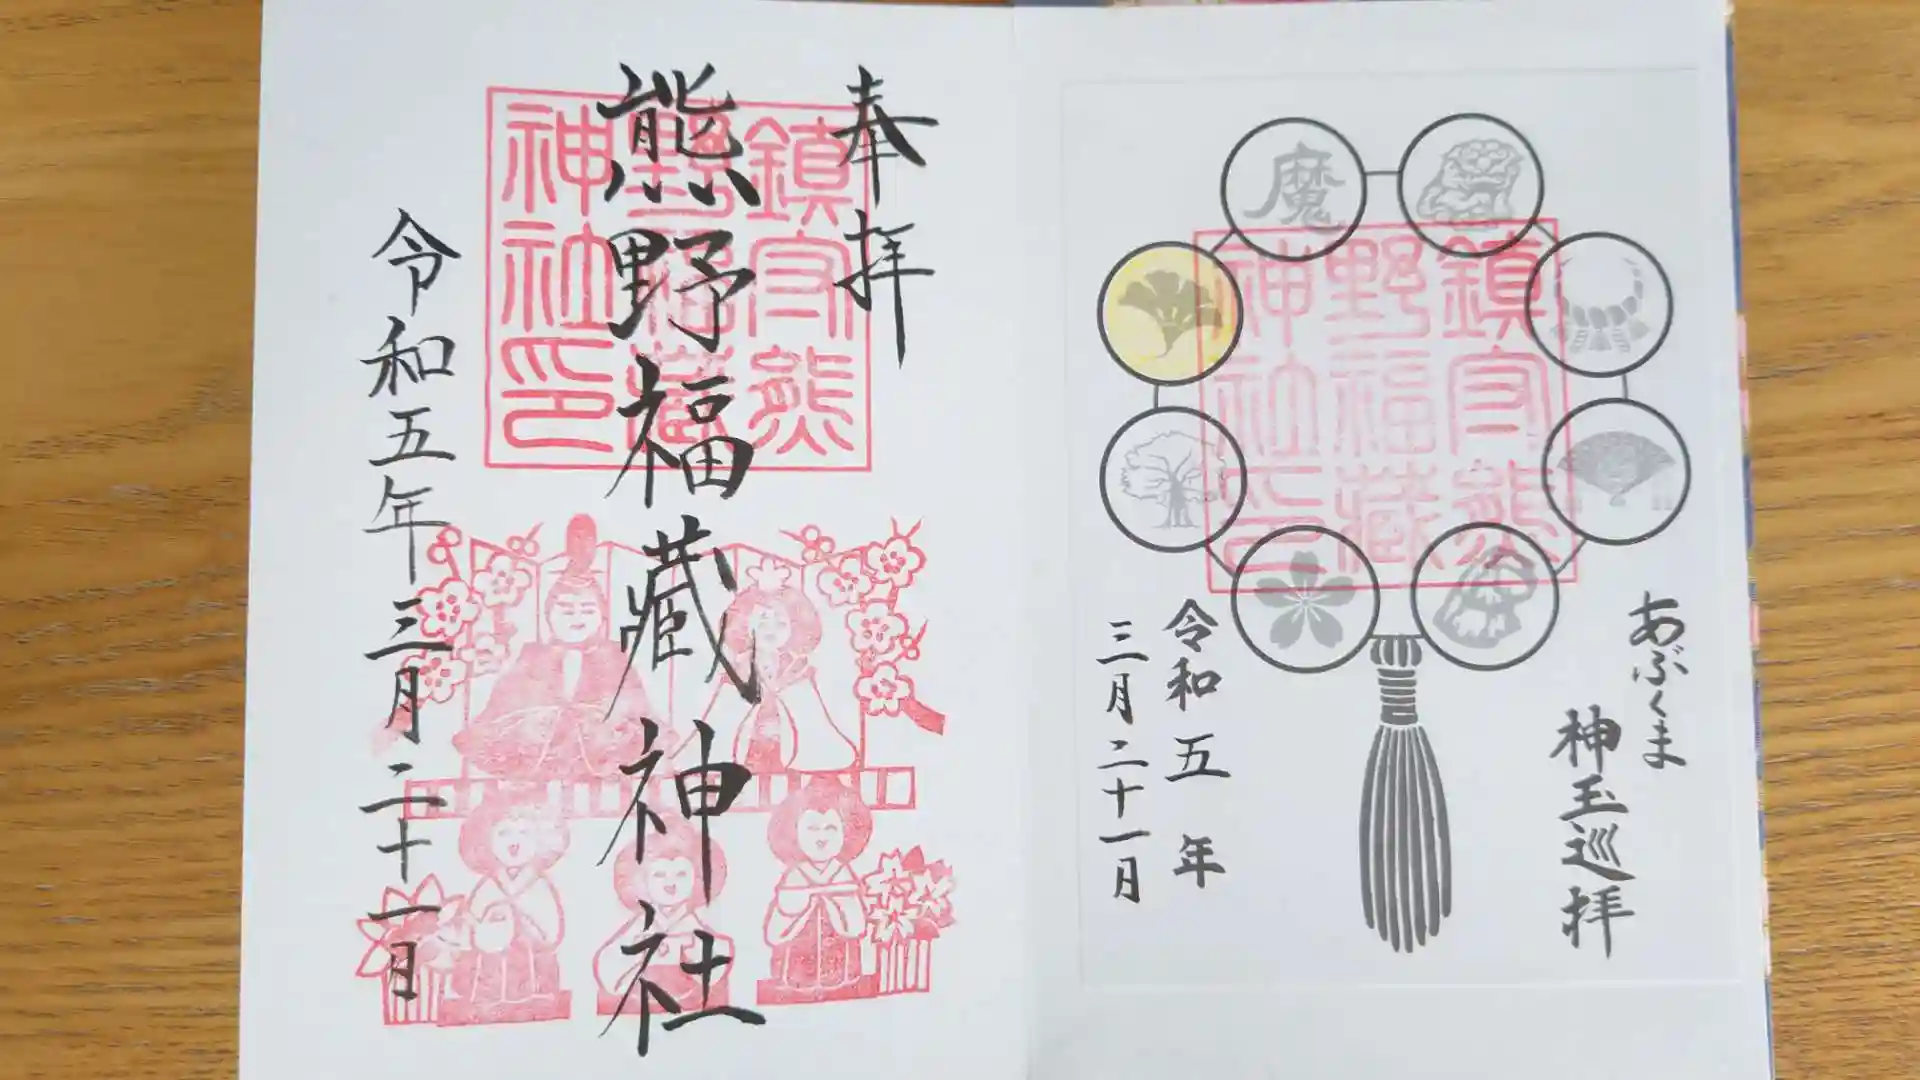 あぶくま
神玉巡拝
魔
鎮守熊
野福藏
神社印
令和五年
三月二十一日
奉拝
鎮守熊
野福藏
神社印
熊野福藏神社
令和五年三月二十一日